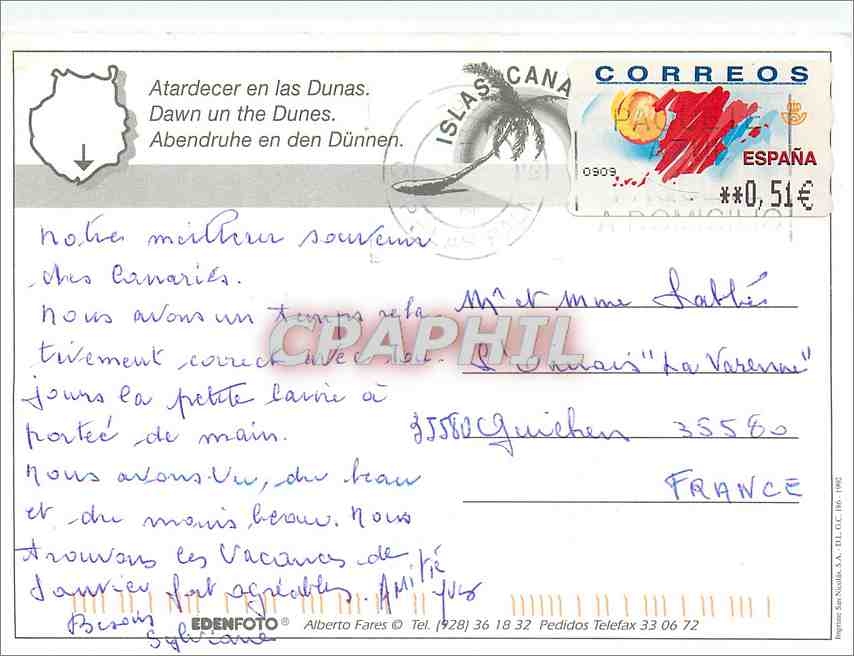 Atardecer en las Dunas.
Dawn un the Dunes.
Abendruhe en den Dünnen.
ISLAS CANA
CORREOS
ESPAÑA
0909
**0,51€
A DOMICILIO
Notre meilleur souvenir
des Canaries.
Nous avons un temps rela
tivement correct avec tou-
jours la petite laine à
portée de main.
Nous avons vu, du beau
et du moins beau. Nous
trouvons les vacances de
Janvier fort agréables. Amitié
Yves
Bisous
Sylviane
Mr et Mme Labbé
"La Varenne"
35580 Guichen 35580
FRANCE
CPAPHIL
EDENFOTO® Alberto Fares © Tel. (928) 36 18 32 Pedidos Telefax 33 06 72
Imprime San Nicolás, S.A. - D.L. G.C. 186 - 1992